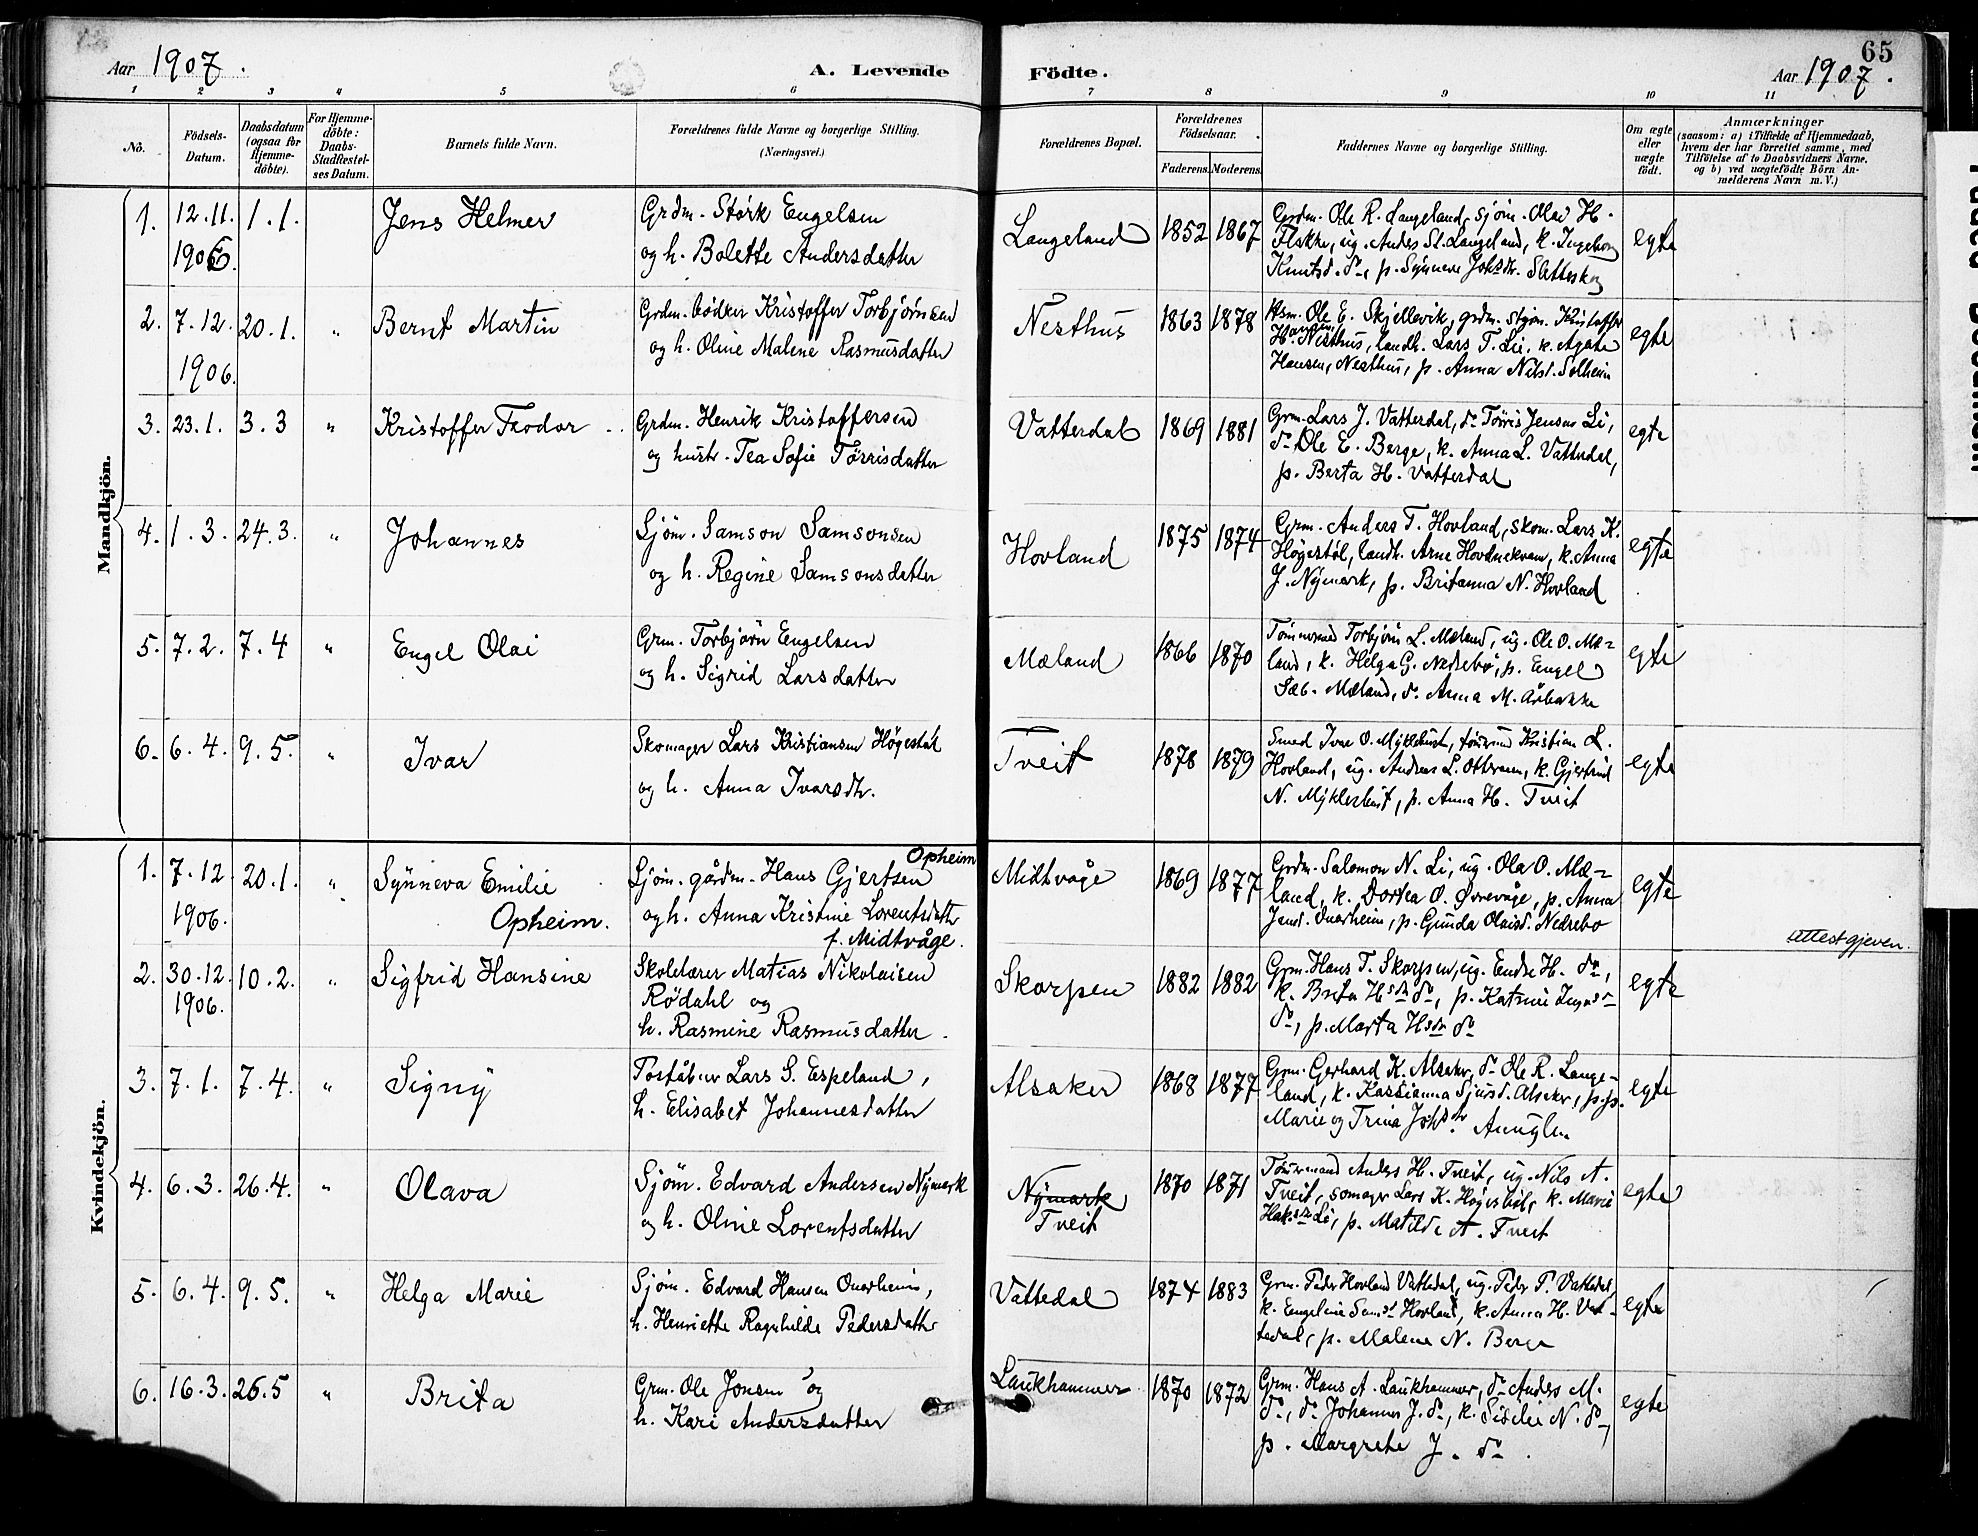 Aar 1907. A. Levende Födte. Aar 1907. 65
1 2 3 4 5 6 7 8 9 10 11
No.
Födsels-Datum.
Daabsdatum (ogsaa for Hjemme-döbte).
For Hjemme-döbte: Daabs-Stadfæstel-ses Datum.
Barnets fulde Navn.
Forældrenes fulde Navne og borgerlige Stilling. (Næringsvei.)
Forældrenes Bopæl.
Forældrenes Födselsaar.
Faderens. Moderens.
Faddernes Navne og borgerlige Stilling.
Om ægte eller uægte födt.
Anmærkninger
(saasom: a) i Tilfælde af Hjemmedaab,
hvem der har forrettet samme, med
Tilföielse af to Daabsvidners Navne,
og b) ved uægtefödte Börn An-
melderens Navn m. V.)
Mandkjön.
1. 12.11. 1906. 1.1. Jens Helmer
Grdm. Störk Engelsen
og h. Bolette Andersdatter
Langeland 1852 1867
Grdm. Ole R. Langeland, sjøm. Olav H.
Flakke, ug. Andes St. Langeland, k. Ingeborg
Knutsd. do, p. Synneve Slettesko
egte
2. 7.12. 1906. 20.1. " Bernt Martin
Grdm. bödker Kristoffer Torbjörnsen
og h. Oline Malene Rasmusdatter
Nesthus 1863 1878
Hsm. Ole E. Skjellevik, grdm. Kristoffer
H. Hansen Nesthus, landh. Lars T. Li, k. Agate
Hansen, Nesthus, p. Anna Nilsd. Solheim
egte
3. 23.1. 3.3 " Kristoffer Teodor
Grdm. Henrik Kristoffersen
og hustr. Tea Sofie Törrisdatter
Vatterdal 1869 1881
Grm. Lars J. Vatterdal, do Törris Jensen Li,
do Ole E. Berge, k. Anna L. Vatterdal,
p. Berta H. Vatterdal
egte
4. 1.3. 24.3. " Johannes
Sjöm. Samson Samsonsen
og h. Regine Samsonsdatter
Hovland 1875 1874
Grm. Anders T. Hovland, skom. Lars K.
Högestöl, landh. Arne Hovdnekvam, k. Anna
J. Nymark, p. Britanna N. Hovland
egte
5. 7.2. 7.4 " Engel Olai
Grm. Torbjörn Engelsen
og h. Sigrid Larsdatter
Mæland 1866 1870
Tömmermd Torbjörn L. Mæland, ug. Ole O. Mæ-
land, k. Helga G. Nedrebö, p. Engel
Sæb. Mæland, do Anna M. Årbakke
egte
6. 6.4. 9.5. " Ivar
Skomager Lars Kristiansen Högestöl
og h. Anna Ivarsdtr.
Tveit 1878 1879
Smed Ivar O. Myklebust, Kristian L.
Hovland, ug. Andreas L. k. Gjertrud
N. Myklebust, p. Anna H. Tveit
egte
Kvindekjön.
1. 7.12. 1906. 20.1. " Synneva Emilie Opheim.
Sjöm. gårdm. Hans Gjertsen Opheim
og h. Anna Kristine Lorentsdatter
f. Midtvåge.
Midtvåge 1869 1877
Grdm. Salomon N. Li, ug. Ola O. Mæ-
land, k. Dortea O. Övrevåge, p. Anna
Jensd. Onarheim, p. Gunda Olaisd. Nedrebo
egte
Attest gjeven.
2. 30.12. 1906. 10.2. " Sigfrid Hansine
Skolelærer Matias Nikolaisen
Rödahl og
h. Rasmine Rasmusdatter.
Skorpen 1882 1882
Grm. Hans T. Skorpen, ug. Endre H. do,
k. Brita Hsdtr do, p. Katrine
do, p. Marta Hsdtr do
egte
3. 7.1. 7.4. " Signy
Poståbner Lars S. Espeland,
h. Elisabet Johannesdatter
Alsaker 1868 1877
Grm. Gerhard K. Alsaker, do Ole R. Lange-
land, k. Kassianna Sjursd. Alsaker, p.p.
Marie og Trina
egte
4. 6.3. 26.4. " Olava
Sjöm. Edvard Andersen Nymark
og h. Oline Lorentsdatter
Nymark
Tveit 1870 1871
Tömermand Anders H. Tveit, ug. Nils A.
Tveit, somager Lars K. Högestöl, k. Marie
Li, p. Matilde A. Tveit
egte
5. 6.4. 9.5. " Helga Marie
Sjöm. Edvard Hansen Onarheim,
h. Henriette Ragnhilde Pedersdatter
Vattedal 1874 1883
Grm. Peder Hovland Vattedal, ug. Peder P. Vattedal,
k. Engeline Hovland, k. Anna H. Vat-
tedal, p. Malene N. Berge
egte
6. 16.3. 26.5 " Brita
Grm. Ole Jonsen og
h. Kari Andersdatter
Laukhammer 1870 1872
Grm. Hans A. Laukhammer, do Anders M.
do, do Johannes J. do, k. Siselie N. do,
p. Margrete J. do.
egte